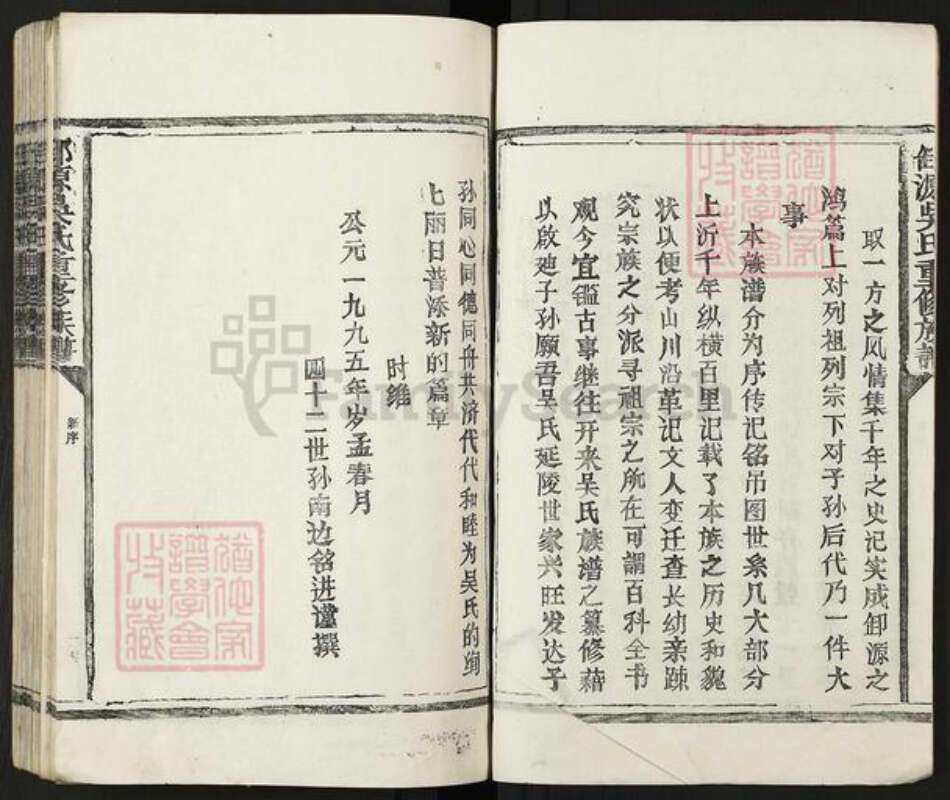 卸源吴氏重修族譜
取一方之风情集千年之史记实成卸源之
鸿篇上对列祖列宗下对子孙后代乃一件大
事
本族谱分为序传记铭吊图世系几大部分
上沂千年纵横百里记载了本族之历史和貌
状以便考山川沿革记文人变迁查长幼亲踈
究宗族之分派寻祖宗之所在可謂百科全书
观今宜鑑古事继往开来吴氏族谱之纂修藉
以啟廸子孙愿吾吴氏延陵世家兴旺发达子
孙同心同德同舟共济代代和睦为吴氏的绚
七丽日普添新的篇章
时维
公元一九九五年岁孟春月
四十二世孙南边铭进谨撰
新序
FamilySearch
譜學會
收藏
譜學會
收藏